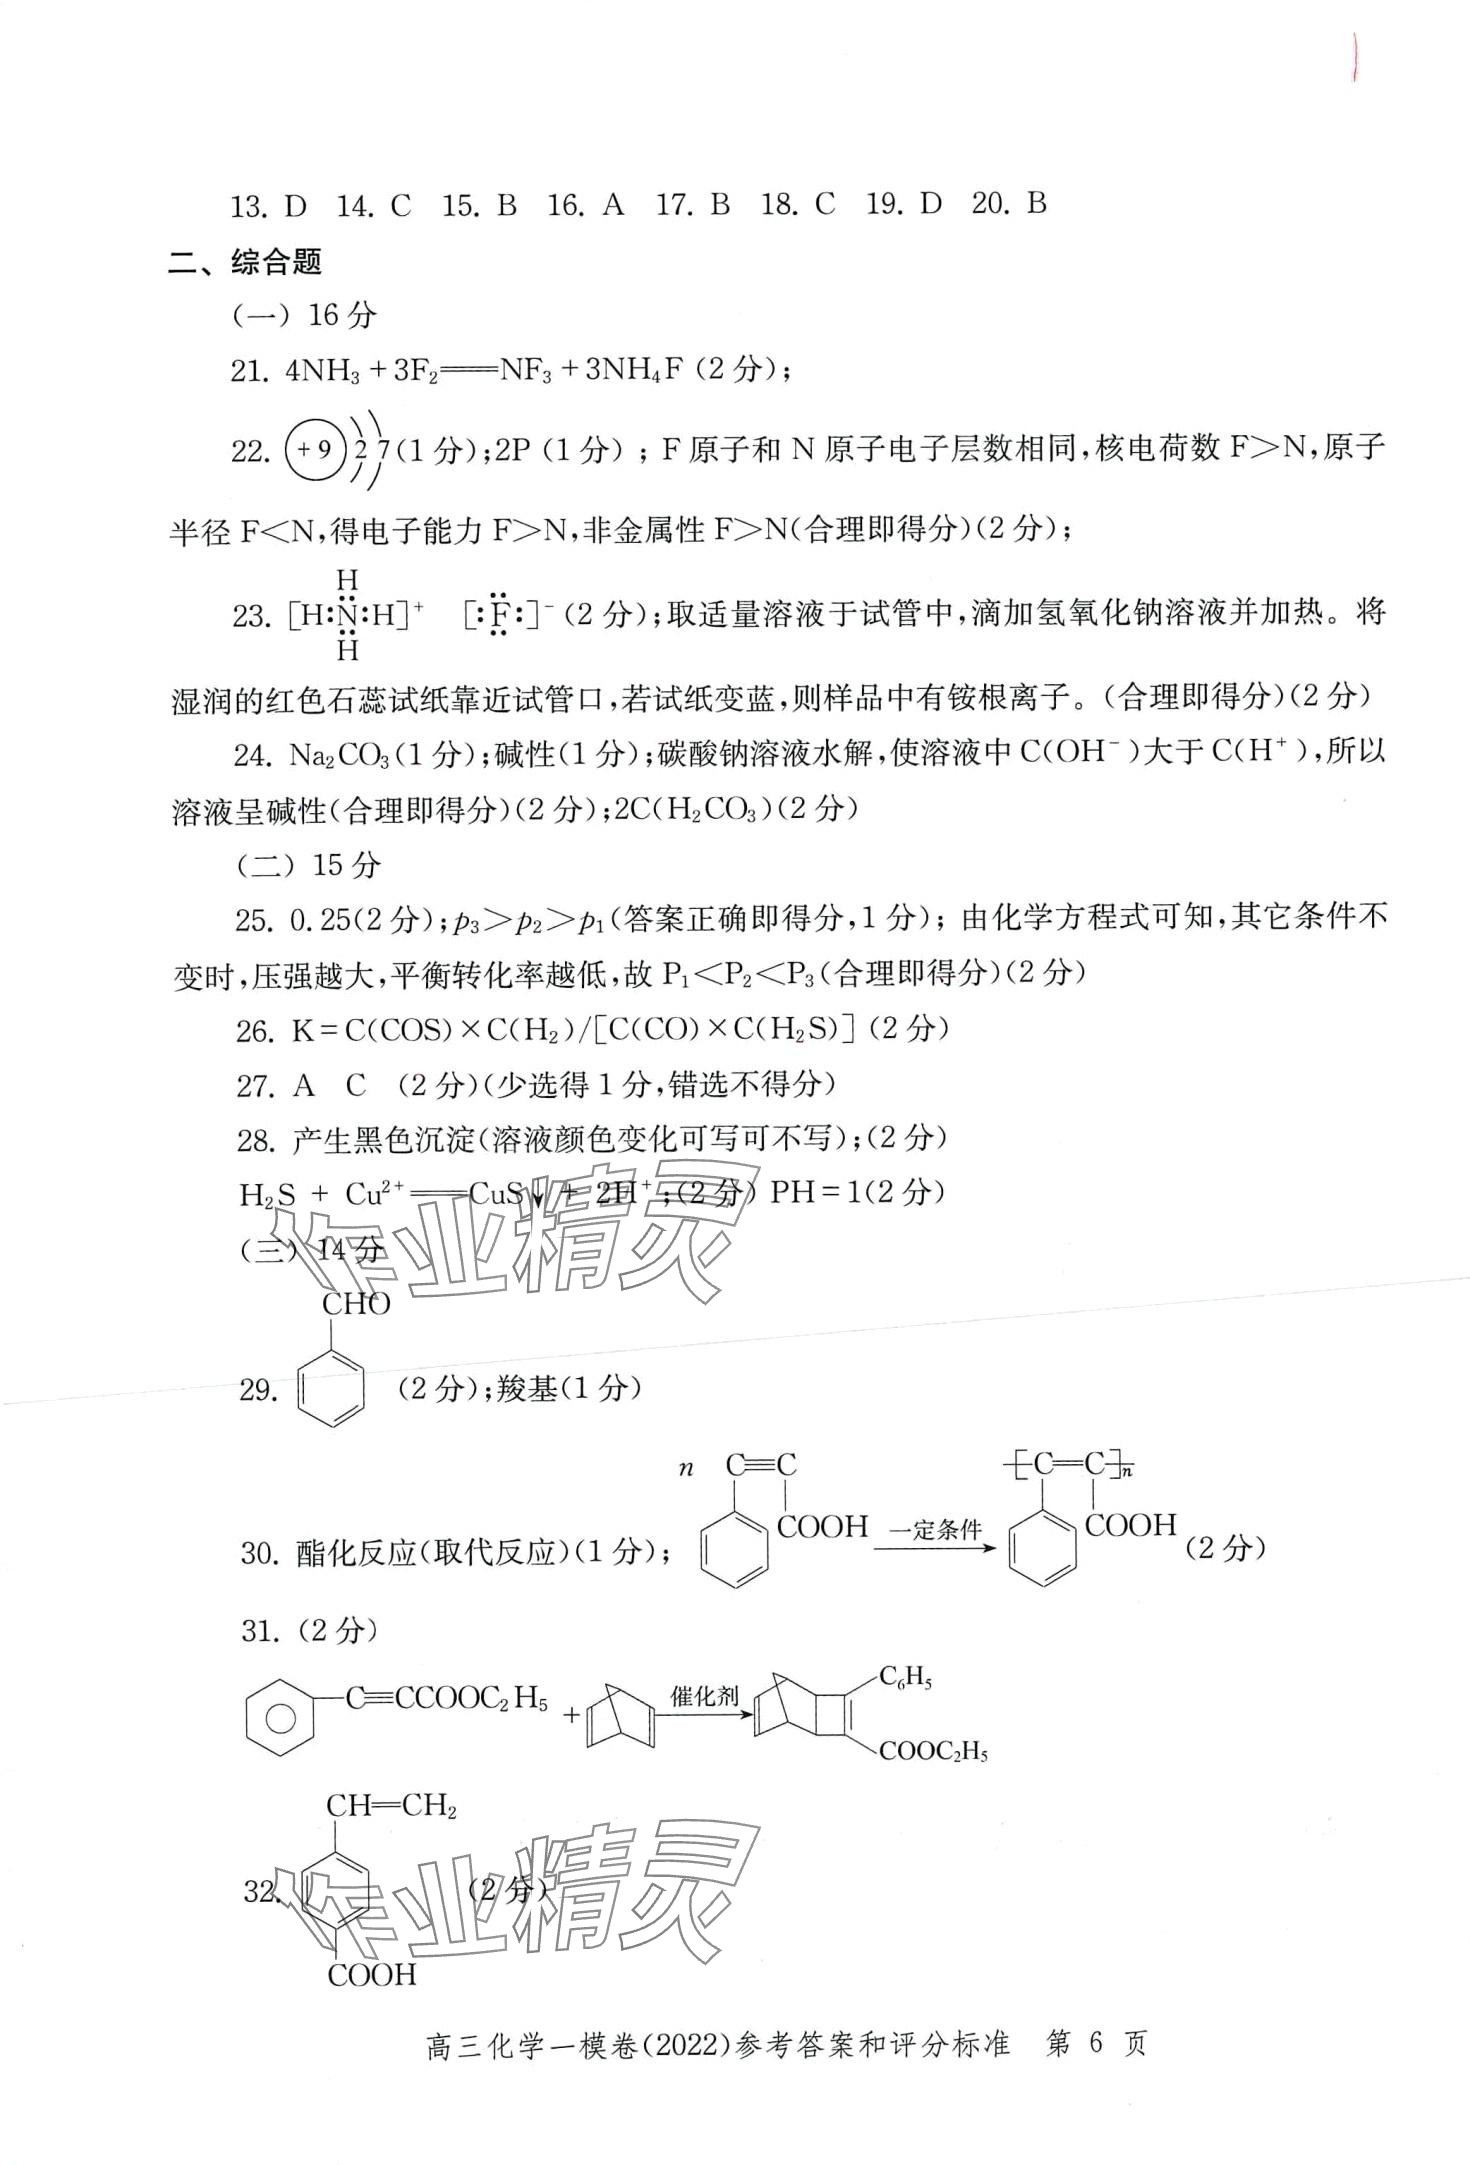 13. D 14. C 15. B 16. A 17. B 18. C 19. D 20. B
二、综合题
（一）16 分
21. 4NH₃＋3F₂══NF₃＋3NH₄F（2 分）;
22. +9 2 7（1 分）;2P（1 分）; F 原子和 N 原子电子层数相同,核电荷数 F＞N,原子
半径 F＜N,得电子能力 F＞N,非金属性 F＞N（合理即得分）（2 分）;
H
23. [H:N:H]⁺ [:F:]⁻（2 分）;取适量溶液于试管中,滴加氢氧化钠溶液并加热。将
H
湿润的红色石蕊试纸靠近试管口,若试纸变蓝,则样品中有铵根离子。（合理即得分）（2 分）
24. Na₂CO₃（1 分）;碱性（1 分）;碳酸钠溶液水解,使溶液中 C(OH⁻)大于 C(H⁺),所以
溶液呈碱性（合理即得分）（2 分）;2C(H₂CO₃)（2 分）
（二）15 分
25. 0.25（2 分）;p₃＞p₂＞p₁（答案正确即得分,1 分）; 由化学方程式可知,其它条件不
变时,压强越大,平衡转化率越低,故 P₁＜P₂＜P₃（合理即得分）（2 分）
26. K＝C(COS)×C(H₂)/[C(CO)×C(H₂S)]（2 分）
27. A C （2 分）（少选得 1 分,错选不得分）
28. 产生黑色沉淀（溶液颜色变化可写可不写）;（2 分）
H₂S ＋ Cu²⁺══CuS↓ ＋ 2H⁺;（2 分）PH＝1（2 分）
（三）14 分
CHO
29. （2 分）;羧基（1 分）
n C≡C [C═C]n
COOH 一定条件 COOH
30. 酯化反应（取代反应）（1 分）; （2 分）
31.（2 分）
C₆H₅
C≡CCOOC₂H₅ + 催化剂
COOC₂H₅
CH═CH₂
32. （2 分）
COOH
高三化学一模卷（2022）参考答案和评分标准 第 6 页
作业精灵
作业精灵